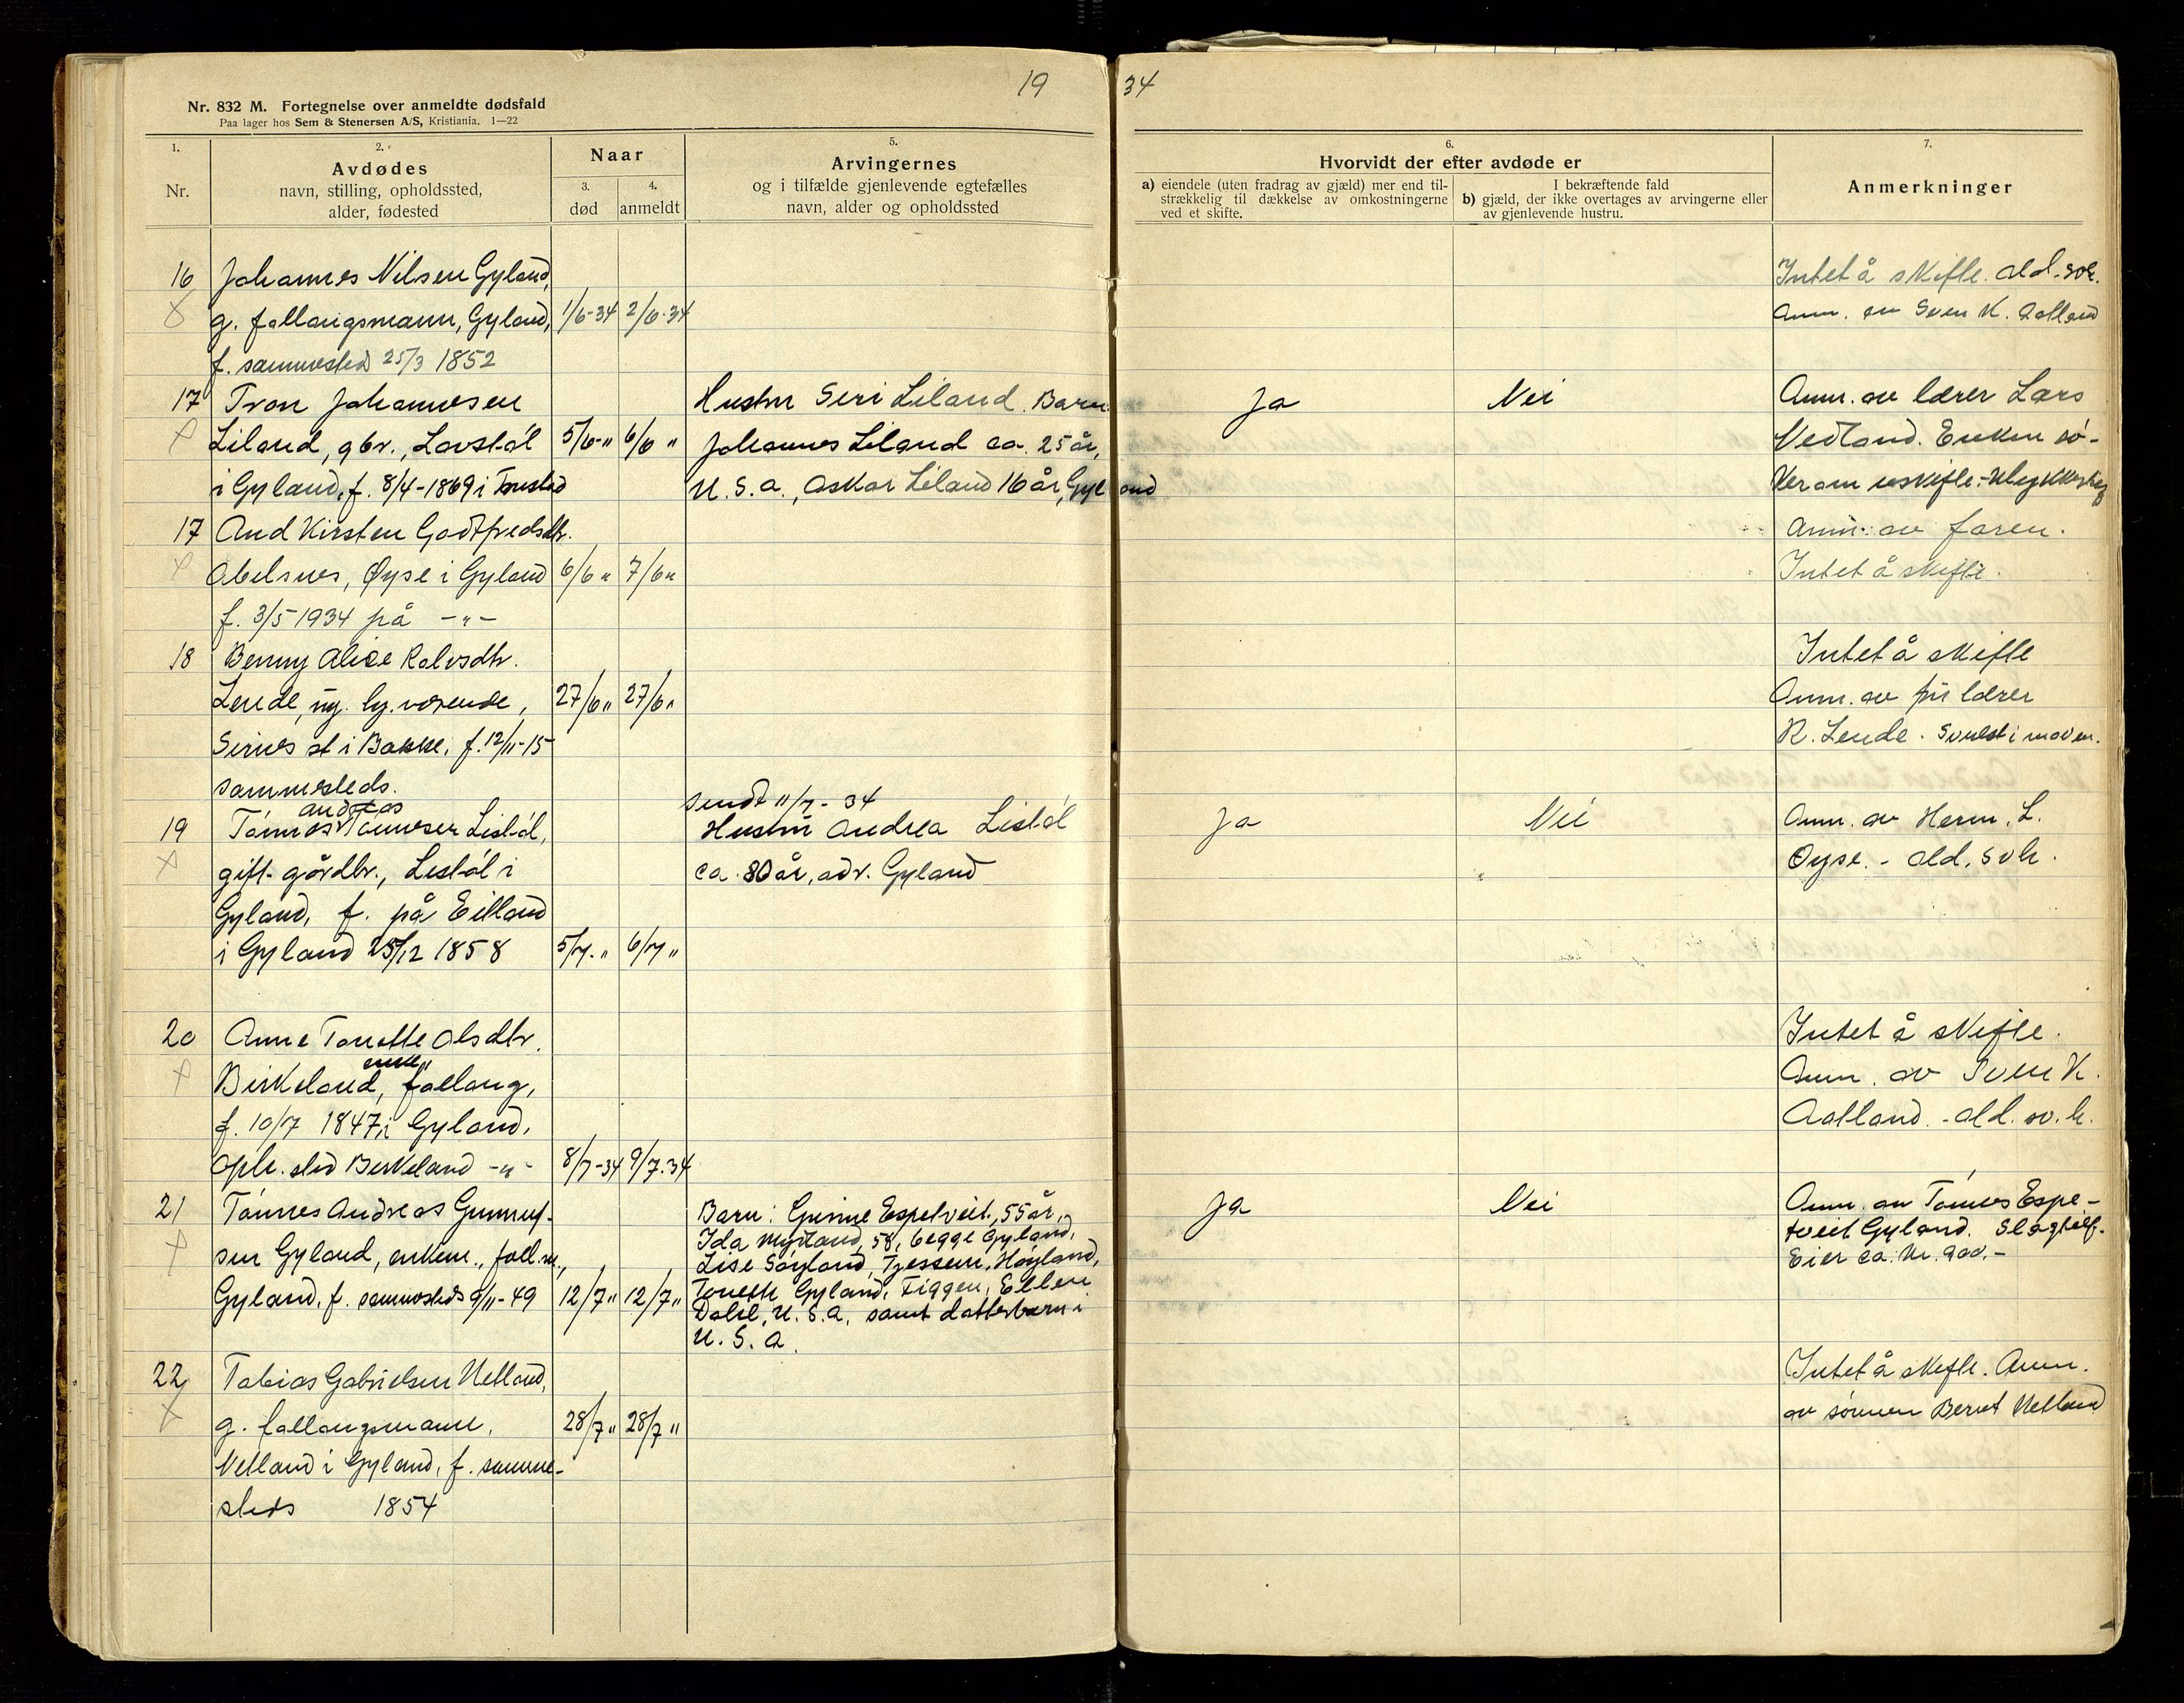 19 34
Nr. 832 M. Fortegnelse over anmeldte dødsfald
Paa lager hos Sem & Stenersen A/S, Kristiania. 1—22
1.
Nr.
2.
Avdødes
navn, stilling, opholdssted,
alder, fødested
Naar
3.
død
4.
anmeldt
5.
Arvingernes
og i tilfælde gjenlevende egtefælles
navn, alder og opholdssted
6.
Hvorvidt der efter avdøde er
a) eiendele (uten fradrag av gjæld) mer end til-
strækkelig til dækkelse av omkostningerne
ved et skifte.
I bekræftende fald
b) gjæld, der ikke overtages av arvingerne eller
av gjenlevende hustru.
7.
Anmerkninger
16 Johannes Nilsen Gyland,
g. follaugsmann, Gyland, 1/6-34 2/6-34
f. sammested 25/3 1852
Intet å skifte. ald.svk.
Anm. av Sven K. Aatland
17 Tron Johannesen
Liland, gbr., Lavstøl 5/6-" 6/6 "
i Gyland, f. 8/4-1869 i
Hustru Siri Liland. Barn
Johannes Liland ca. 25 år,
U.S.a., Oskar Liland 16 år, Gyland
Ja Nei
Anm. av lærer Lars
Vedland. Enken sø-
ker om uskifte.
17 Aud Kirsten Godtfredsdtr.
Abelsnes, Øyse i Gyland 6/6 " 7/6 "
f. 3/5 1934 på -"-
Anm. av faren.
Intet å skifte.
18 Benny Alice Ralvsdtr.
Lende, ug. hj.værende, 27/6 " 27/6 "
Sirnes st i Bakke, f. 12/11-15
sammesteds.
Intet å skifte
Anm. av lærer
R. Lende. Svulst i maven.
19 Tønnes Andreas Tønnesen Listøl,
gift gårdbr., Listøl i
Gyland, f. på Eitland
i Gyland 25/12 1858 5/7-" 6/7 "
Sendt 11/7-34
Hustru Andrea Listøl
ca. 80 år, adr. Gyland
Ja Nei
Anm. av Herm. L.
Øyse. - ald. svk.
20 Anne Tonette Olsdtr.
Birkeland, enke, follaug,
f. 10/7 1847, i Gyland,
oph. sted Birkeland -"- 8/7-34 9/7-34
Intet å skifte.
Anm. av Sven K.
Aatland. - ald. sv.k.
21 Tønnes Andreas Gunnuf-
sen Gyland, enkem., foll.m.,
Gyland, f. sammesteds 9/11-49 12/7 " 12/7 "
Barn: Gunine Espetveit, 55 år,
Ida Mydland, 58, begge Gyland,
Lise Søyland, Tjessem, Høyland,
Tonette Gyland, Figgen, Ellen
Dahl, U.S.A. samt datterbarn i
U.S.A.
Ja Nei
Anm. av Tønnes Espe-
tveit Gyland. Slagtilf.
Eier ca. kr. 900.-
22 Tobias Gabrielsen Netland,
g. follaugsmann, 28/7 " 28/7 "
Netland i Gyland, f. samme-
steds 1854
Intet å skifte. Anm.
av sønnen Bernt Netland